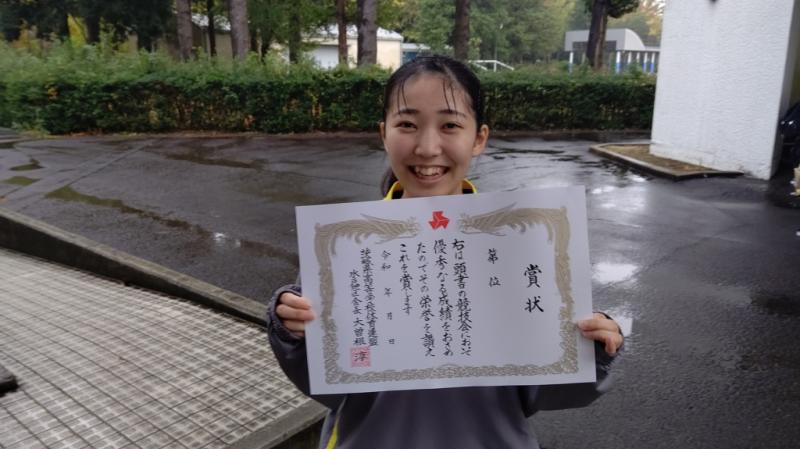 賞状
第 位
右は頭書の競技会において
優秀なる成績をおさめ
たのでその栄誉を讃え
これを賞します
令和 年 月 日
茨城県高等学校体育連盟
水戸地区会長 大曽根 淳